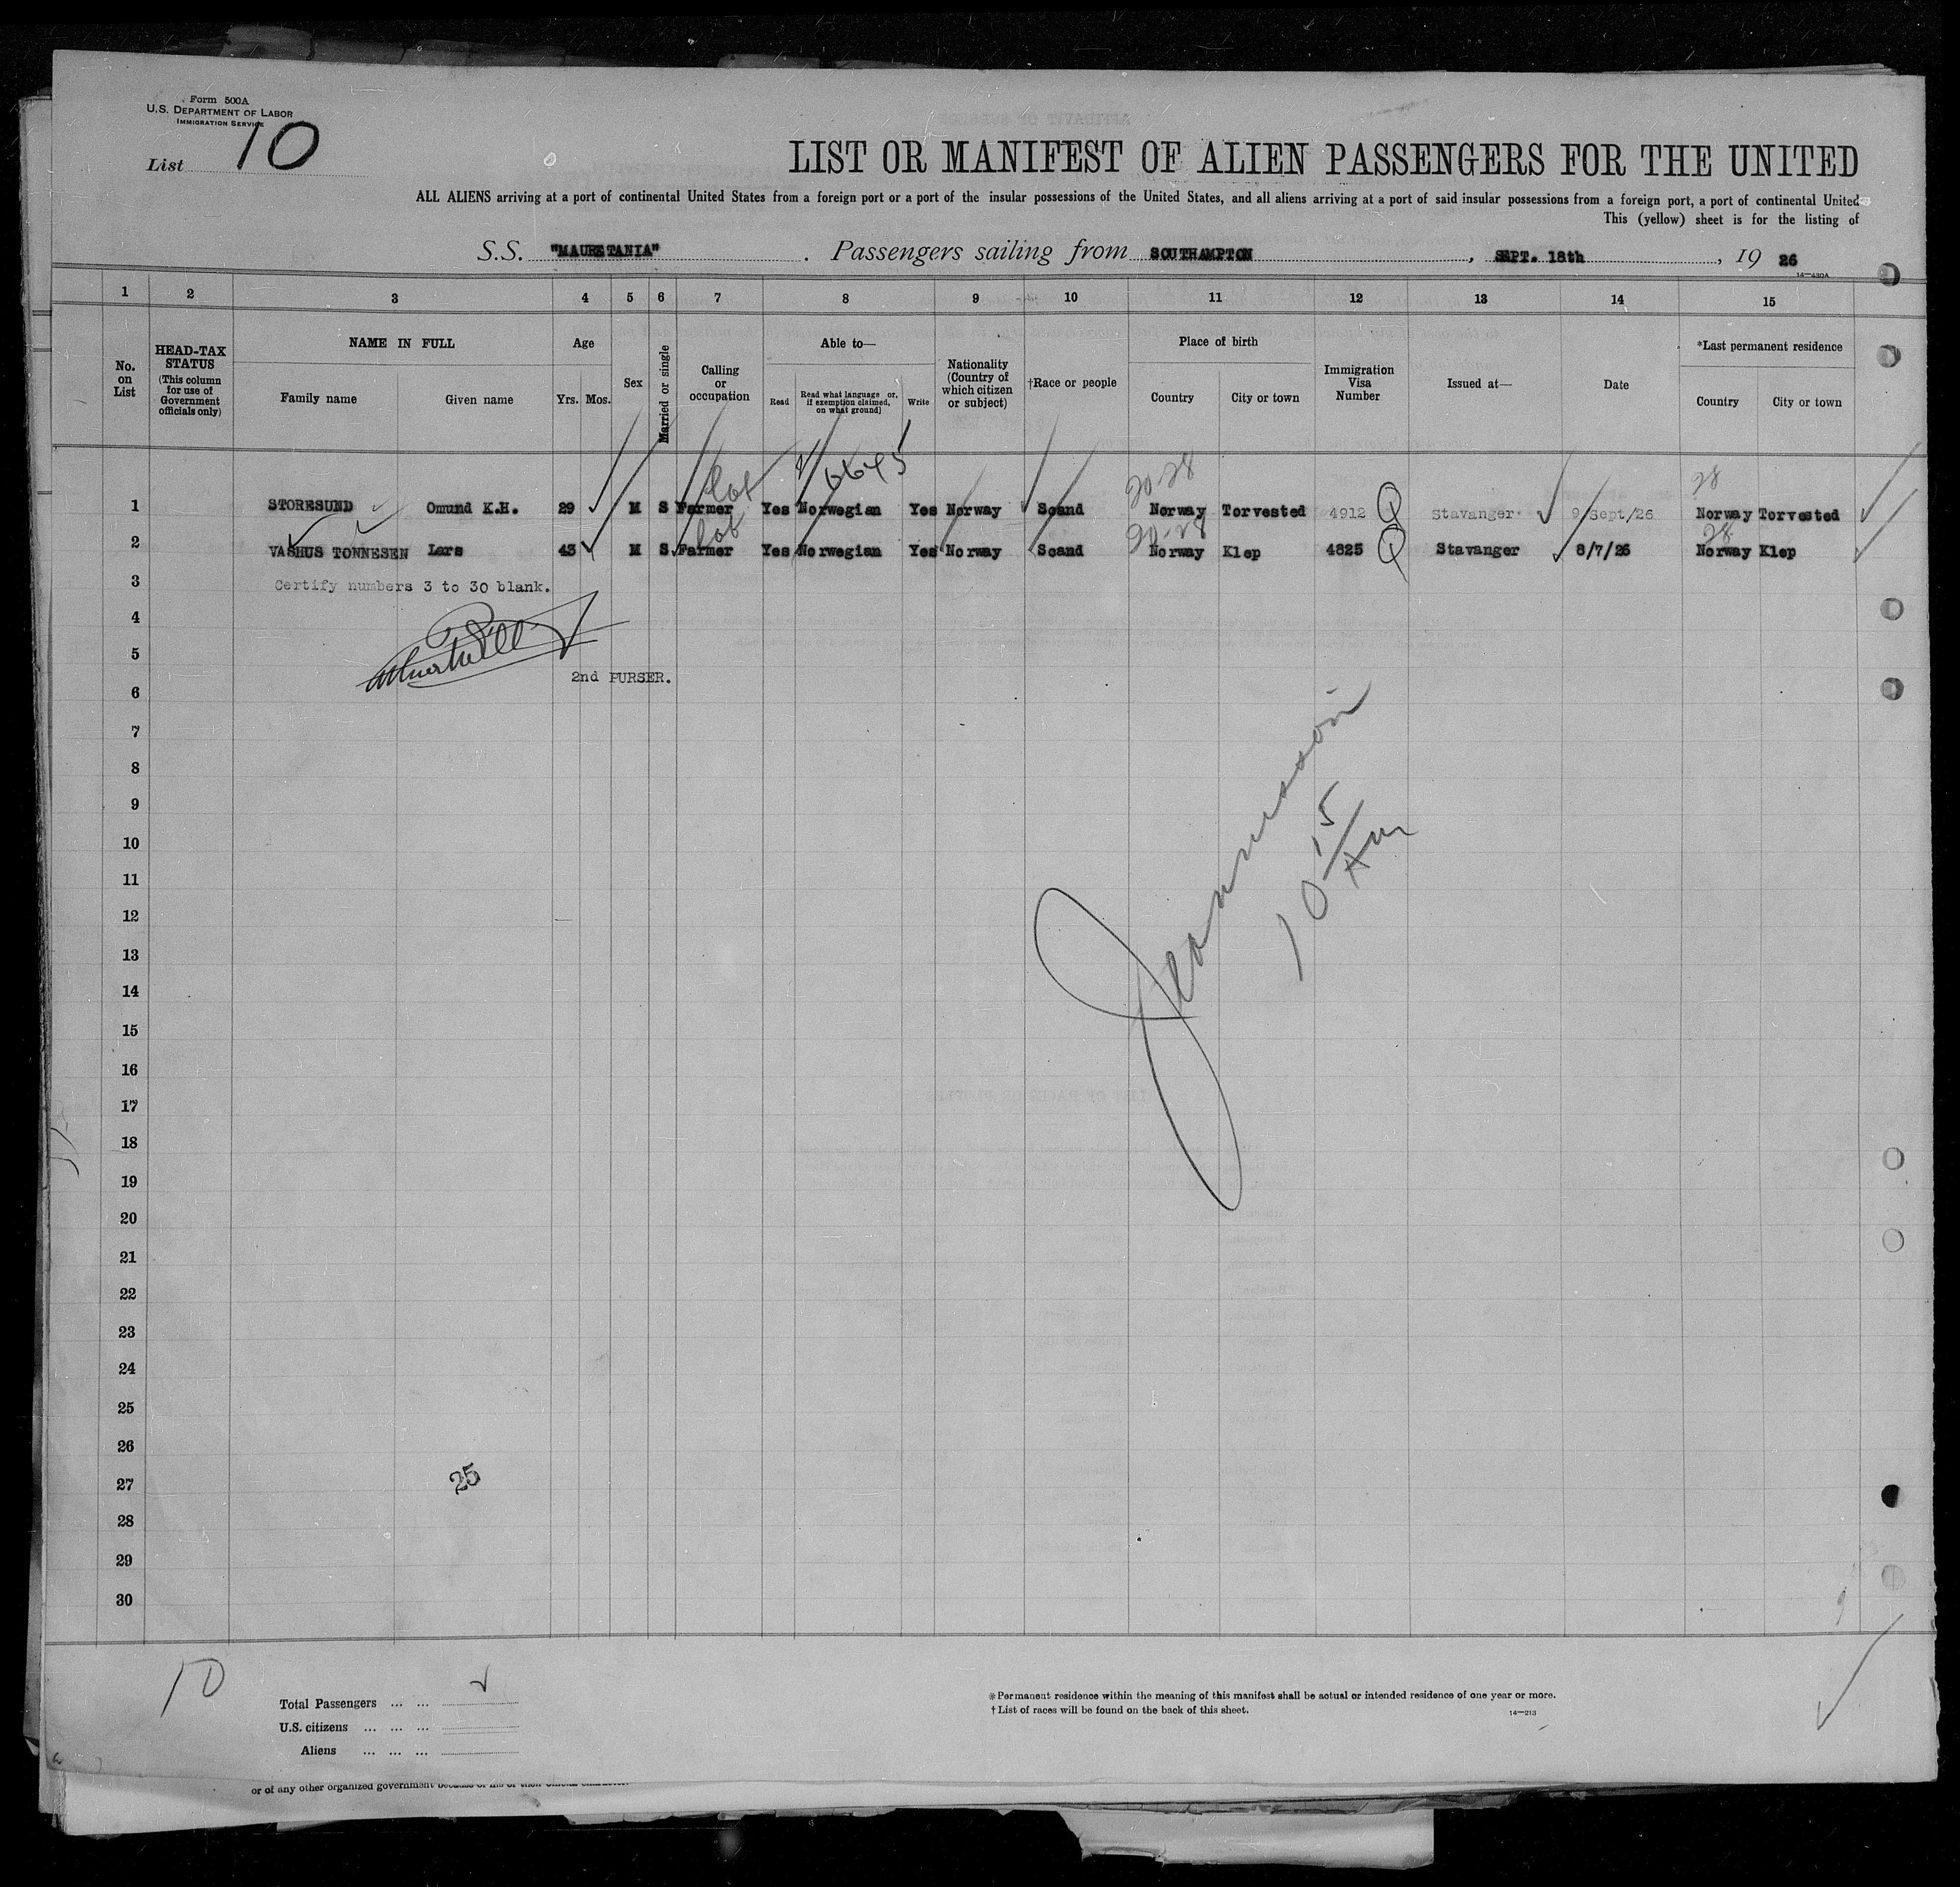 Form 500A
U.S. DEPARTMENT OF LABOR
IMMIGRATION SERVICE
List 10
LIST OR MANIFEST OF ALIEN PASSENGERS FOR THE UNITED
ALL ALIENS arriving at a port of continental United States from a foreign port or a port of the insular possessions of the United States, and all aliens arriving at a port of said insular possessions from a foreign port, a port of continental United
This (yellow) sheet is for the listing of
S.S. "MAURETANIA" . Passengers sailing from SOUTHAMPTON , SEPT. 18th , 19 26
14—430A
1 2 3 4 5 6 7 8 9 10 11 12 13 14 15
No. on List
HEAD-TAX STATUS (This column for use of Government officials only)
NAME IN FULL
Family name Given name
Age
Yrs. Mos.
Sex
Married or single
Calling or occupation
Able to—
Read Read what language or, if exemption claimed, on what ground] Write
Nationality (Country of which citizen or subject)
†Race or people
Place of birth
Country City or town
Immigration Visa Number
Issued at—
Date
*Last permanent residence
Country City or town
6645
20-28 28
1 STORESUND Omund K.H. 29 M S Farmer Yes Norwegian Yes Norway Scand Norway Torvested 4912 Q Stavanger 9/Sept/26 Norway Torvested
20-28 28
2 VASHUS TONNESEN Lars 43 M S Farmer Yes Norwegian Yes Norway Scand Norway Klep 4825 Q Stavanger 8/7/26 Norway Klep
3 Certify numbers 3 to 30 blank.
4
5
2nd PURSER.
6
7
8
9
10
10 15 Am
11
12
13
14
15
16
17
18
19
20
21
22
23
24
25
26
27 25
28
29
30
10
Total Passengers ... ...
U.S. citizens ... ... ...
Aliens ... ... ...
*Permanent residence within the meaning of this manifest shall be actual or intended residence of one year or more.
†List of races will be found on the back of this sheet.
14—213
or of any other organized government because of his or their official character.